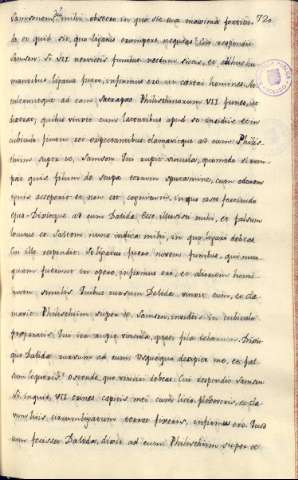 720
Samsonem: Dic mihi obsecro in quo sit tua maxima fortitu-
do et quid sit, quo ligatus erumpere nequeas? Cui respondit
Samson: Si VII nerviceis funibus necdum siccis, et adhuc hu-
mentibus ligatus fuero, infirmus ero ut caeteri homines. At-
tuleruntque ad eam Satrapae Philisthinorum VII funes, ut di-
xerat; quibus vinxit eum latentibus apud se insidiis et in
cubiculo finem rei expectantibus clamavitque ad eum: Philis-
thiim super te, Samson. Qui rupit vincula, quomodo si rum-
pat quis filum de stupa tortum sputamine, cum odorem
ignis acceperit et non est cognitum in quo esset fortitudo
ejus. Dixitque ad eum Dalida: Ecce illusisti mihi, et falsum
locutus es. Saltem nunc indica mihi, in quo ligari debeas.
Cui ille respondit: Si ligatus fuero novis funibus, qui num-
quam fuerunt in opere, infirmus ero, et aliorum homi-
num similis. Quibus rursum Dalida vinxit eum, et cla-
mavit: Philisthiim super te, Samson, insidiis in cubiculo
praeparatis. Qui ita rupit vincula, quasi fila telarum. Dixit-
que Dalida rursum ad eum: Usquequo decipies me, et fal-
sum loqueris? ostende quo vinciri debeas. Cui respondit Samson:
Si inquit VII crines capitis mei cum licio plexueris, et cla-
vum his circumligatum terrae fixeris, infirmus ero. Quod
cum fecisset Dalida, dixit ad eum Philisthiim super te